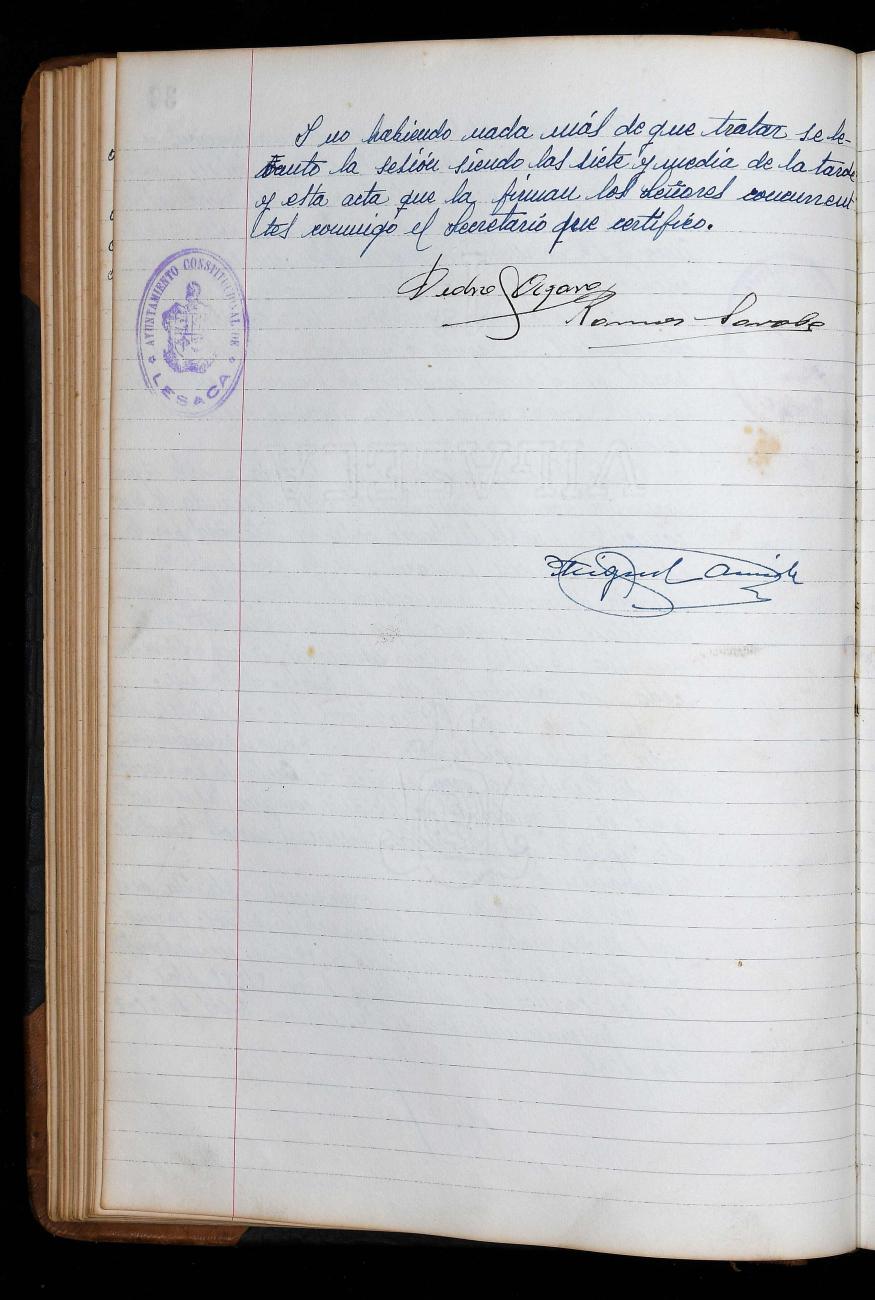 Y no habiendo nada más de que tratar se le-
vanto la sesión siendo las siete y media de la tarde
y esta acta que la firman los señores concurren
tes conmigo el Secretario que certifico.
AYUNTAMIENTO CONSTITUCIONAL DE
LESACA
Pedro
Ramon
Miguel